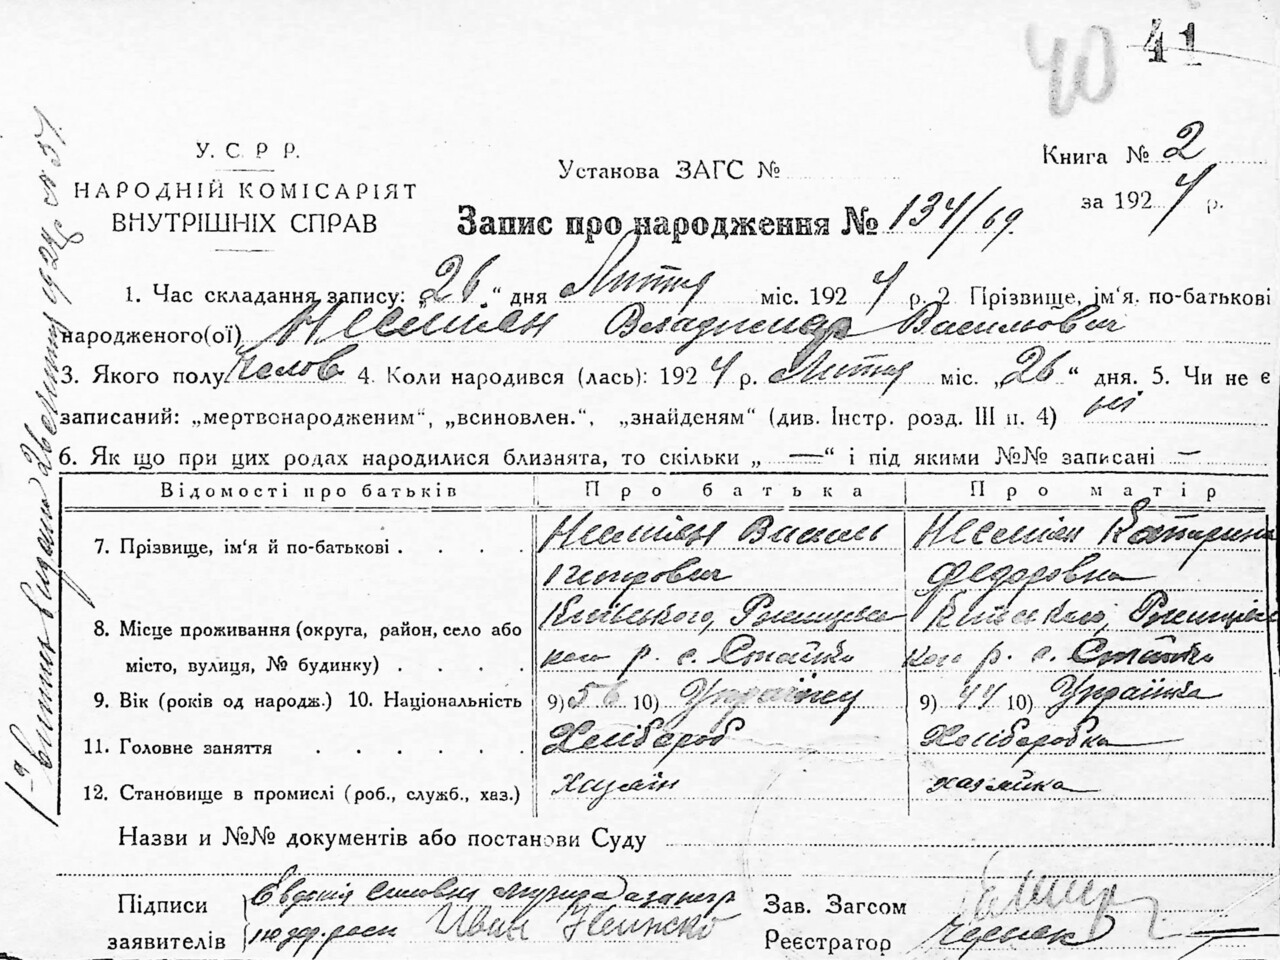 40 41
У. С. Р. Р.
НАРОДНІЙ КОМІСАРІЯТ
ВНУТРІШНІХ СПРАВ
Установа ЗАГС №
Книга № 2
за 1924 р.
Запис про народження № 134/69.
1. Час складання запису: „26“ дня Лютня міс. 1924 р. 2 Прізвище, ім‘я. по-батькові
народженого(ої) Несміян Владимир Василович
3. Якого полу Челов. 4. Коли народився (лась): 1924 р. Лютня міс. „26“ дня. 5. Чи не є
записаний: „мертвонародженим“, „всиновлен.“, „знайденям“ (див. Інстр. розд. III п. 4) ні
6. Як що при цих родах народилися близнята, то скільки „ — “ і під якими №№ записані —
Відомості про батьків Про батька Про матір
7. Прізвище, ім‘я й по-батькові . . . . Несміян Василь Несміян Катерина
Петрович Федоровна
8. Місце проживання (округа, район, село або Київського, Ржищевс Київського, Ржищівс
місто, вулиця, № будинку) . . . . кого р. с. Стайки кого р. с. Стайки
9. Вік (років од народж.) 10. Національність 9) 56 10) Українец 9) 44 10) Українка
11. Головне заняття . . . . . Хлібороб Хліборобка
12. Становище в промислі (роб., служб., хаз.) хазяін хазяйка
Назви и №№ документів або постанови Суду
Підписи
заявителів Иван
Зав. Загсом
Реєстратор